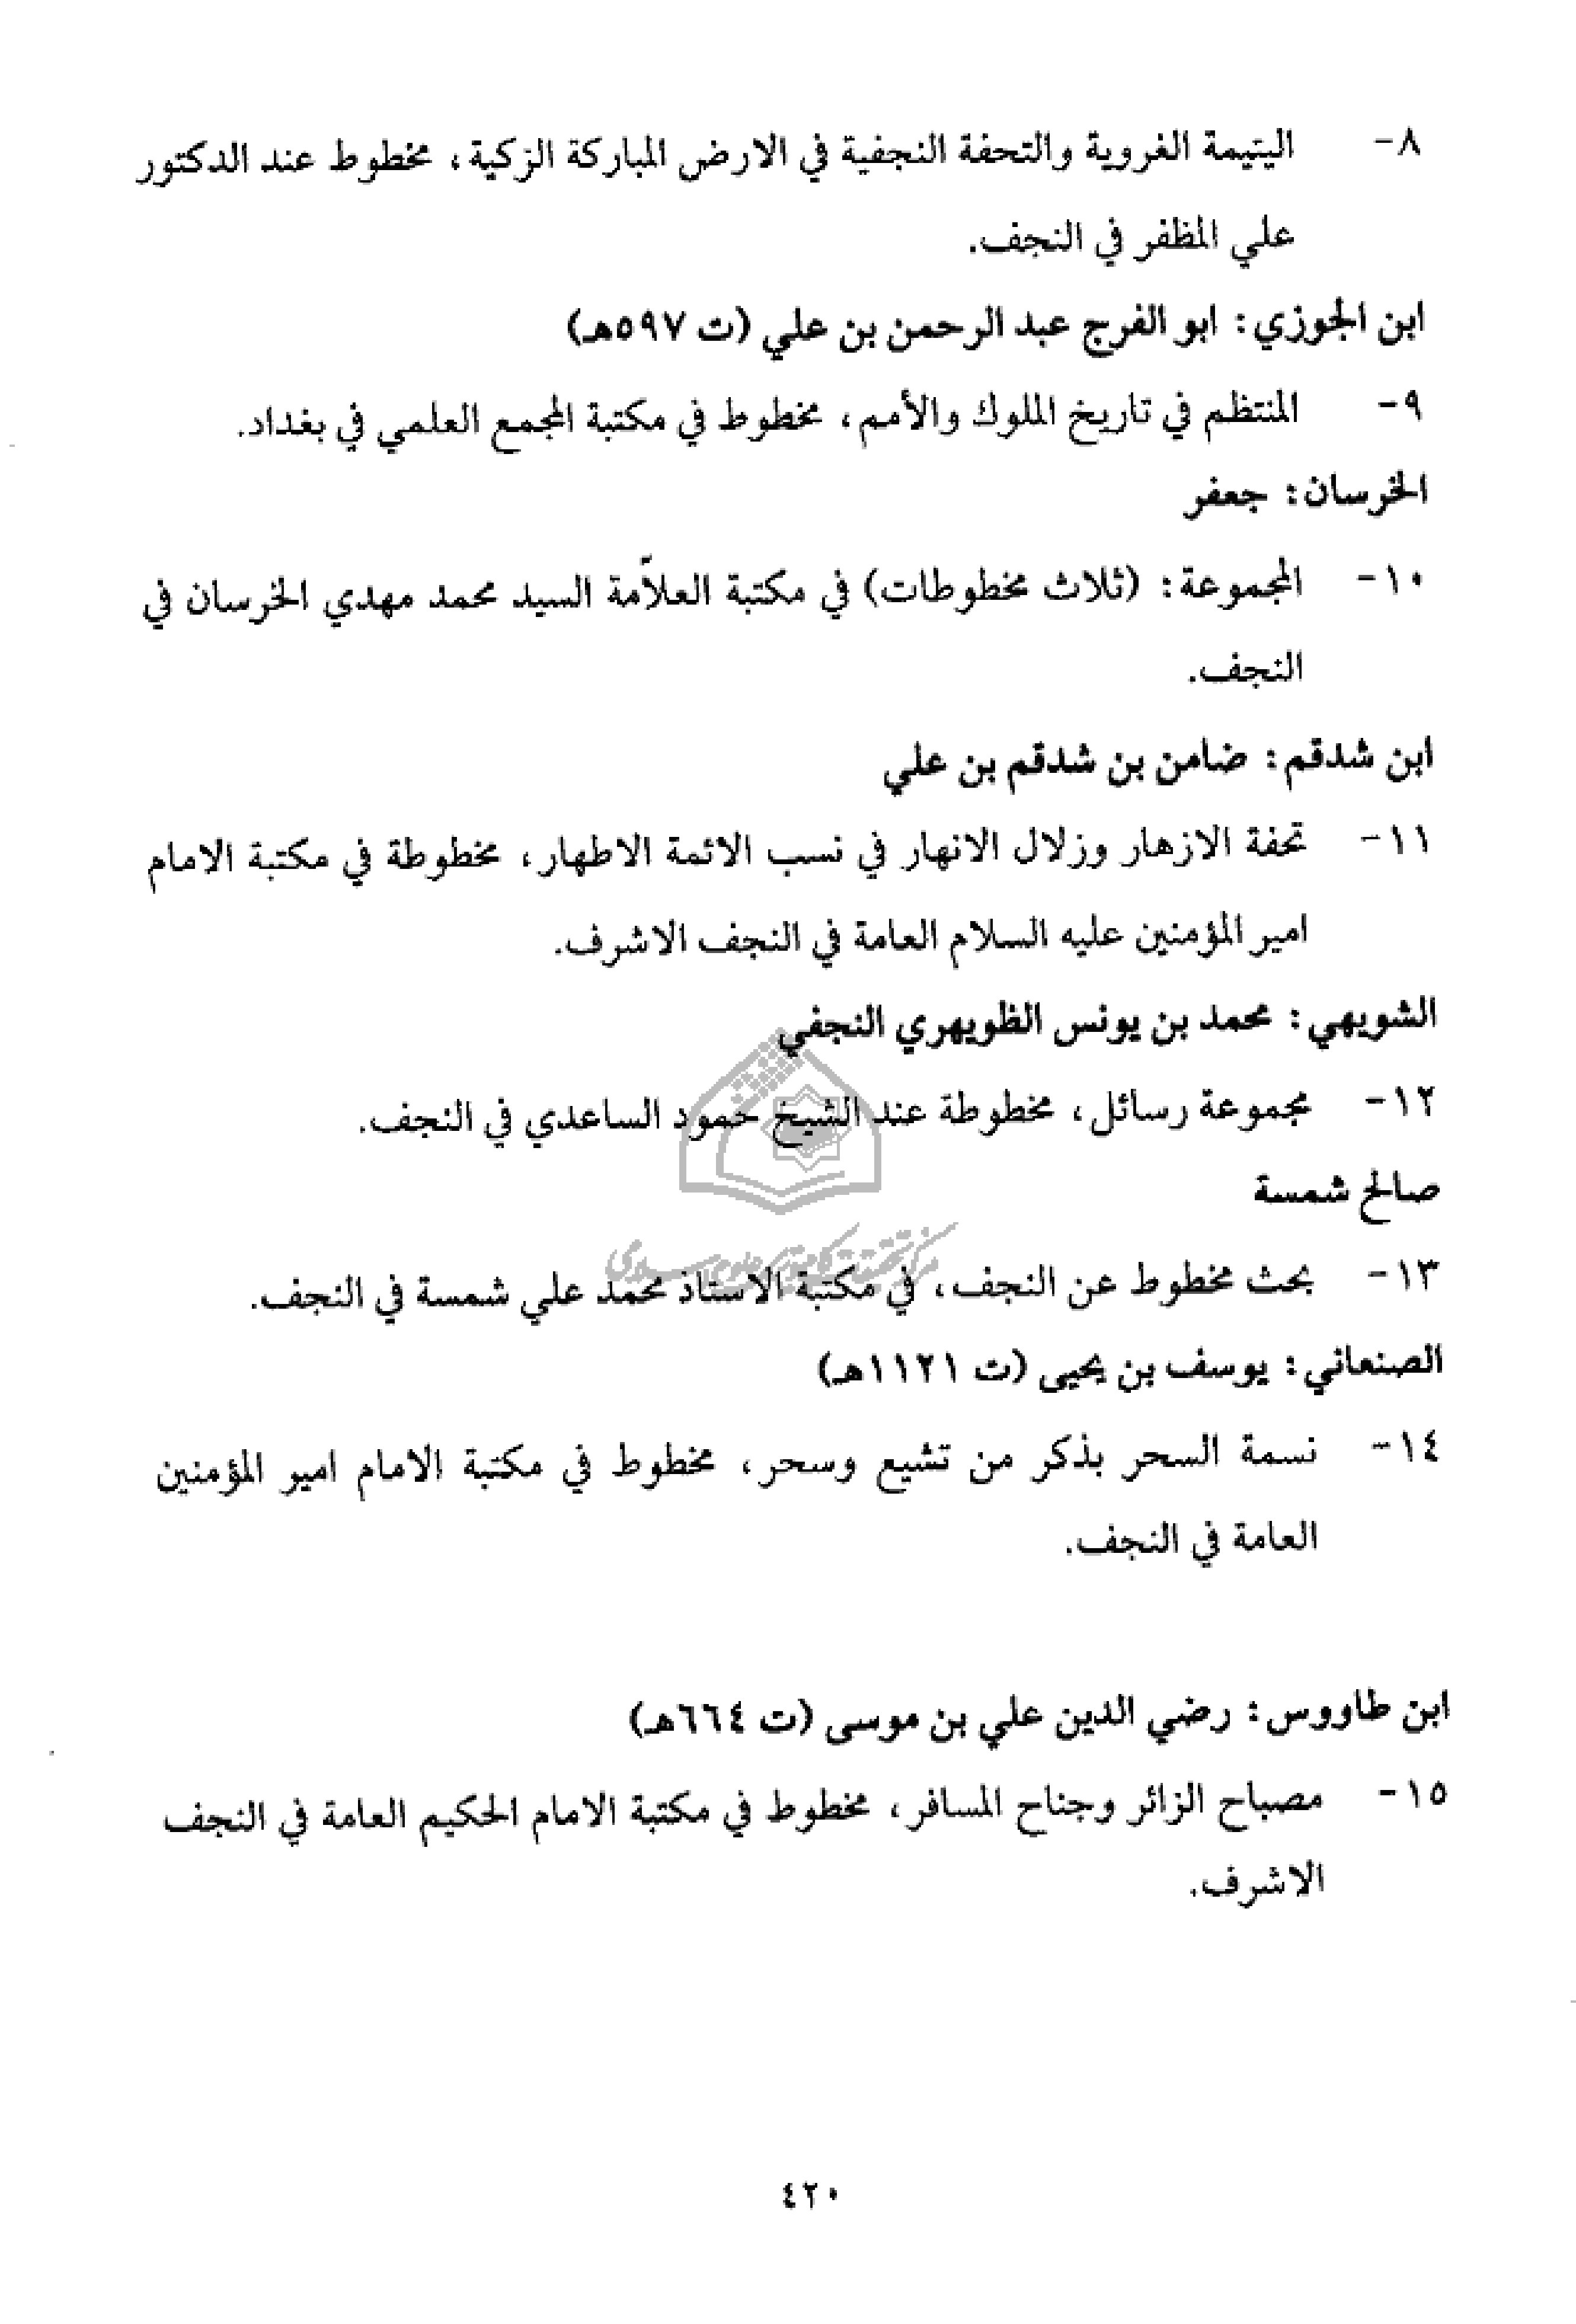 ٨- اليتيمة الغروية والتحفة النجفية في الارض المباركة الزكية، مخطوط عند الدكتور
علي المظفر في النجف.
ابن الجوزي: ابو الفرج عبد الرحمن بن علي (ت ٥٩٧هـ)
٩- المنتظم في تاريخ الملوك والأمم، مخطوط في مكتبة المجمع العلمي في بغداد.
الخرسان: جعفر
١٠- المجموعة: (ثلاث مخطوطات) في مكتبة العلاّمة السيد محمد مهدي الخرسان في
النجف.
ابن شدقم: ضامن بن شدقم بن علي
١١- تحفة الازهار وزلال الانهار في نسب الائمة الاطهار، مخطوطة في مكتبة الامام
امير المؤمنين عليه السلام العامة في النجف الاشرف.
الشويهي: محمد بن يونس الظويهري النجفي
١٢- مجموعة رسائل، مخطوطة عند الشيخ حمود الساعدي في النجف.
صالح شمسة
مرکز تحقیقات کامپیوتری علوم اسلامی
١٣- بحث مخطوط عن النجف، في مكتبة الاستاذ محمد علي شمسة في النجف.
الصنعاني: يوسف بن يحيى (ت ١١٢١هـ)
١٤- نسمة السحر بذكر من تشيع وسحر، مخطوط في مكتبة الامام امير المؤمنين
العامة في النجف.
ابن طاووس: رضي الدين علي بن موسى (ت ٦٦٤هـ)
١٥- مصباح الزائر وجناح المسافر، مخطوط في مكتبة الامام الحكيم العامة في النجف
الاشرف.
٤٢٠